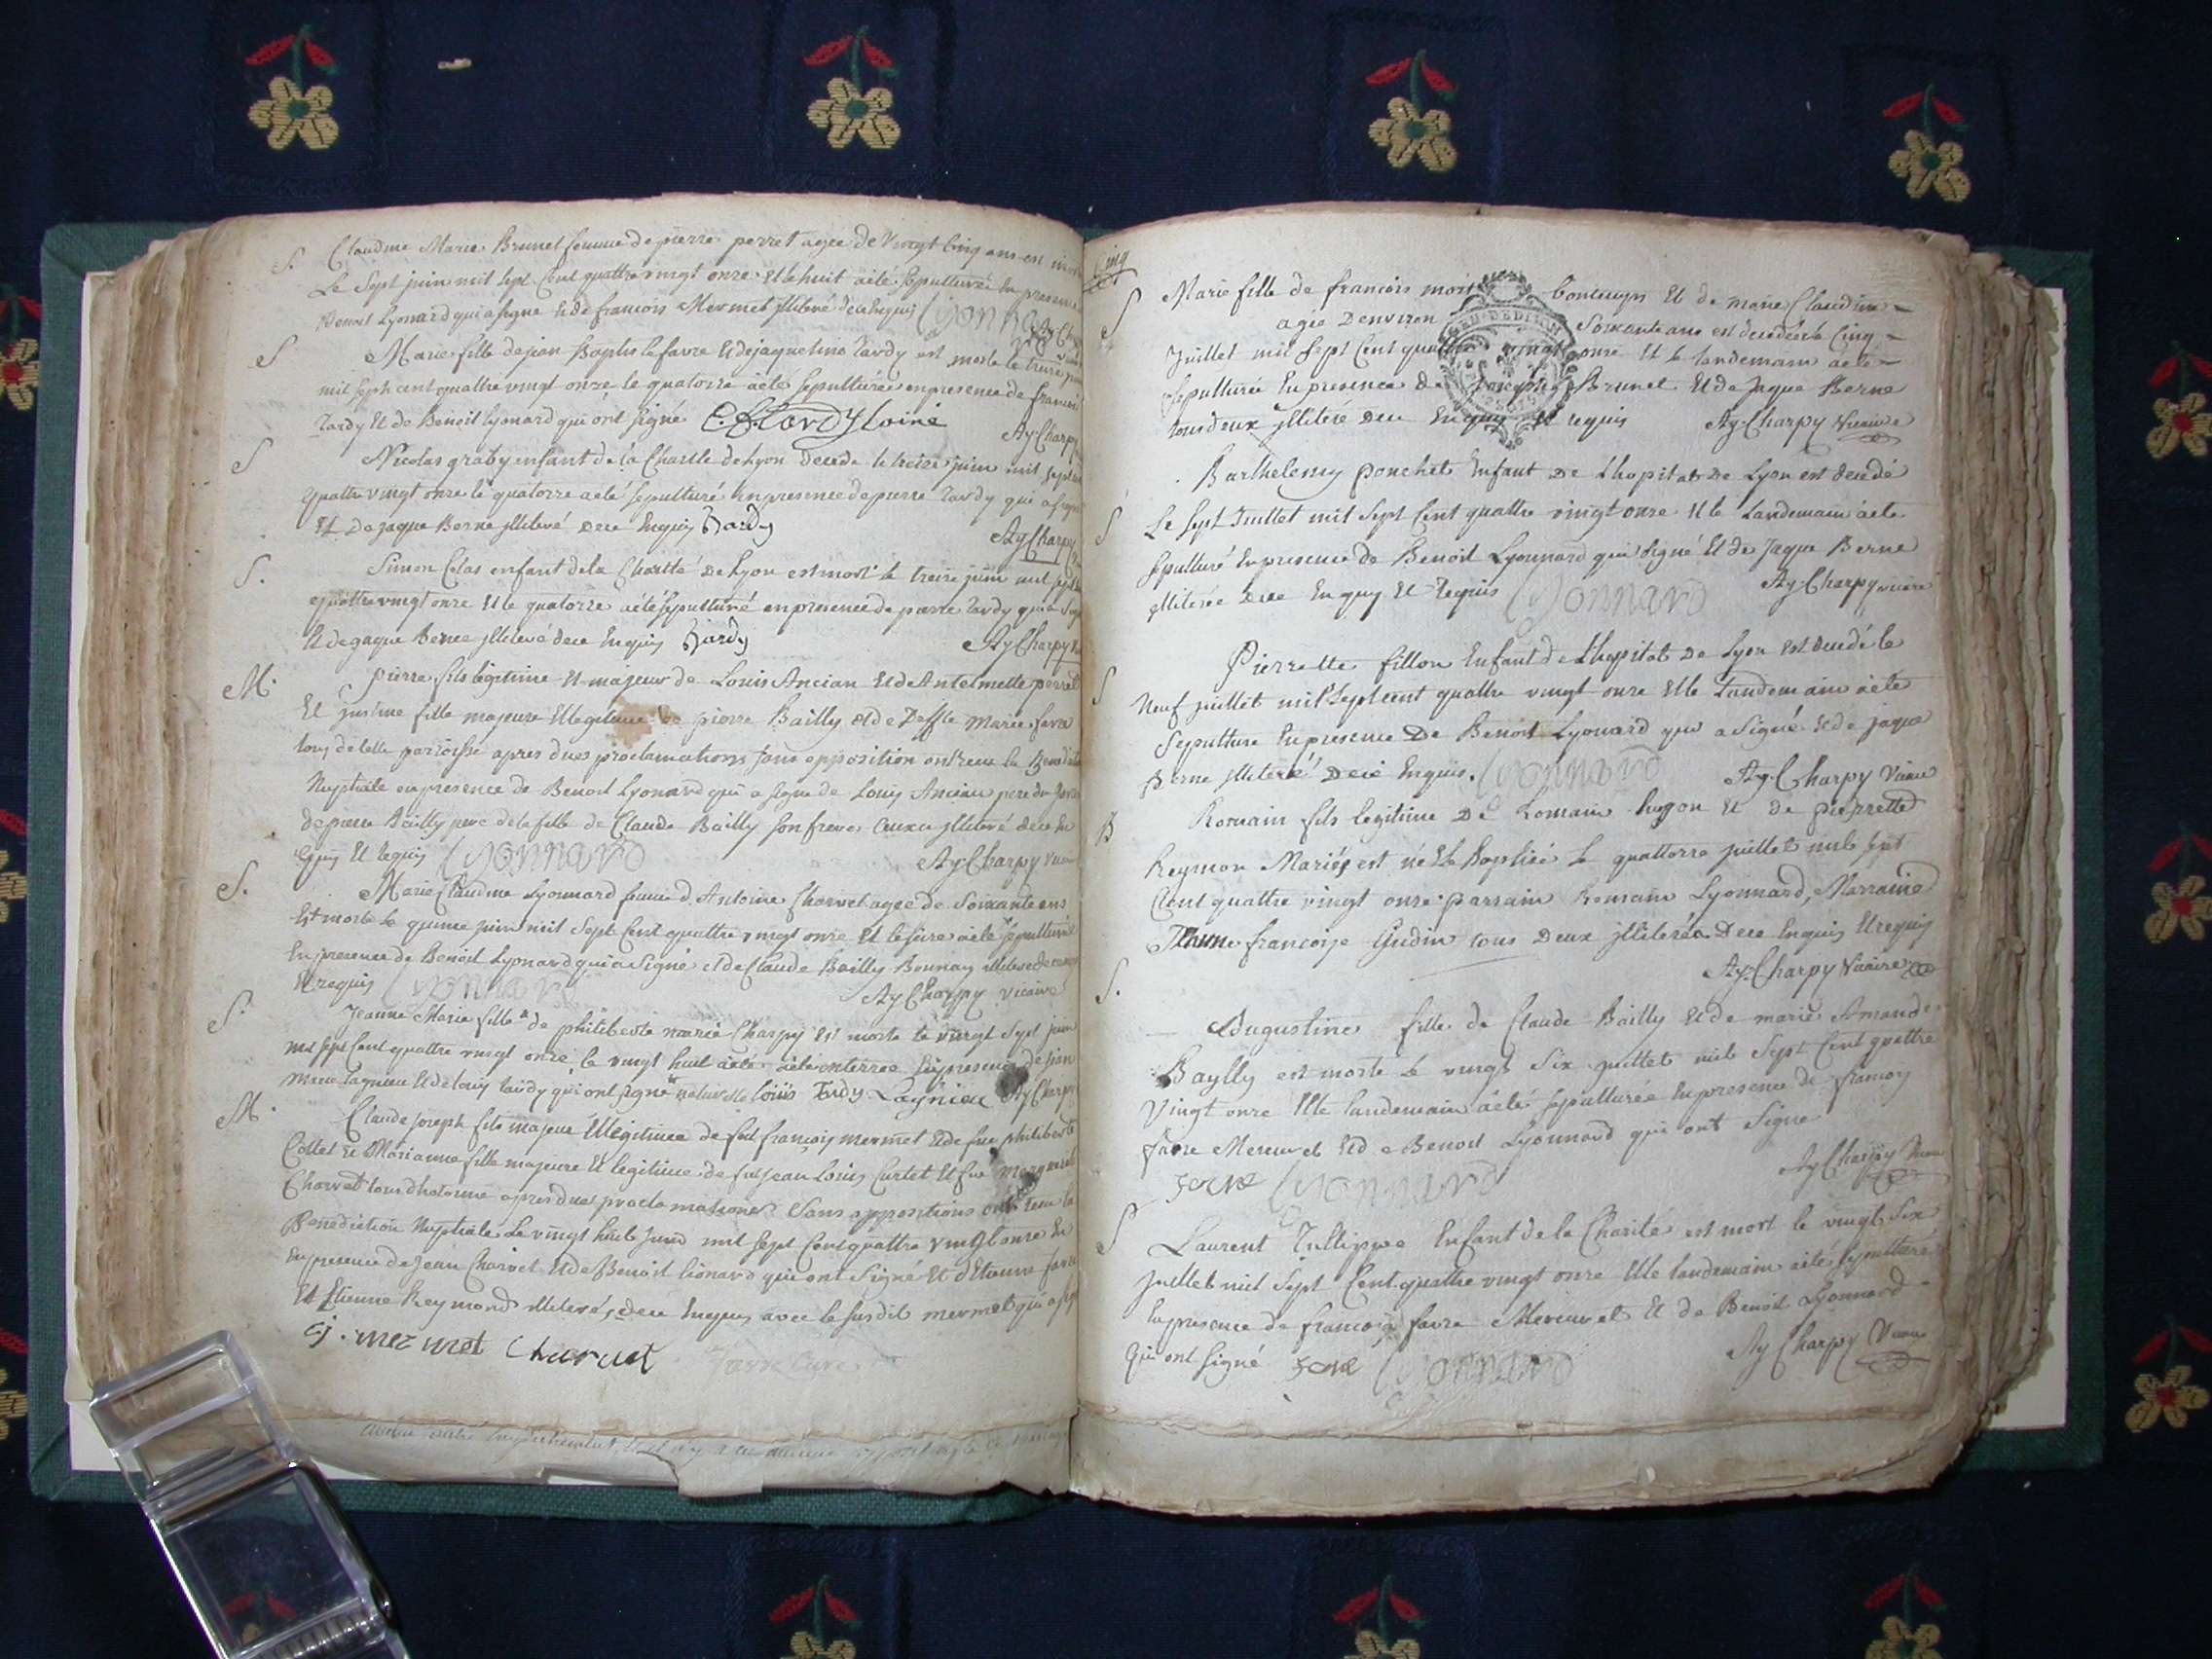 S. Claudine Marie Brunet femme de pierre perret agée de Vingt Cinq ans est
Le Sept juin mil sept Cent quattre vingt onze et le huit aété Sepulturée En presence
Benoit Lyonard qui a signé et de francois Mermet jlliteré dece Enquis Lyonnard Ay Ch
S Marie fille de jean Baptis le favre et de jaqueline Tardy est morte le treize juin
mil sept cent quattre vingt onze le quatorze aété sepulturée en presence de francois
Tardy et de Benoit lyonard qui ont signé Ay Charpy
S Nicolas graby enfant de la Charité de Lyon decede le treize juin mil sept cent
quattre vingt onze le quatorze aété sepulturé en presence de pierre Tardy qui a signé
Et De jaque Berne jlliteré Dece Enquis Tardy Ay Charpy
S. Simon Colas enfant de la Charité De Lyon est mort le treize juin mil sept
quattre vingt onze et le quatorze aété sepulturé en presence de pierre Tardy qui a signé
et de jaque Berne jlliteré dece Enquis Tardy Ay Charpy
M. Pierre fils légitime et majeur de Louis Ancian et de Antelmette perret
Et justine fille majeure et legitime de pierre Bailly et de Marie favre
tous de cette paroisse apres dues proclamations sans opposition ont reçu la Benedict
Nuptiale en presence de Benoit Lyonard qui a signé de Louis Ancian pere du
de pierre Bailly pere de la fille de Claude Bailly son frere ceux cy jlliteré dece En
quis et requis Lyonnard Ay Charpy vicaire
S. Marie Claudine Lyonnard femme d. Antoine Charvet agée de Soixante ans
Est morte le quinze juin mil Sept Cent quattre vingt onze et le seize aété sepulturée
En presence de Benoit Lyonard qui a signé et de Claude Bailly Bonnay
et requis Lyonnard Ay Charpy vicaire
S. Jeanne Marie fille de philiberte marie Charpy est morte le vingt sept juin
mil sept Cent quattre vingt onze, le vingt huit aété enterrée En presence de jean
marie Lagnieu et de louis Tardy qui ont signé naturelle loüis Tardy Lagnieu Ay Charpy
M. Claude joseph fils majeur et légitime de feu françois mermet et de feue philiberte
Collet et Marianne fille majeure et legitime de feu jean Louis Curtet et feue
Charvet tous d'hotonne apres dues proclamations Sans oppositions ont reçu la
Benediction Nuptiale Le vingt huit Juin mil sept Cent quattre vingt onze En
En presence de Jean Charvet et de Benoit lionard qui ont Signé et d'Etienne favre
et Etienne Reymond jlliterés, dece Enquis avec le susdit mermet qui a
cj. mermet Charvet favre Curé
cinq
S Marie fille de francois mort Bontemps Et de marie Claudine
agée Denviron Soixante ans est decedée le Cinq
Juillet mil Sept Cent quattre vingt onze et le landemain aété
sepulturée En presence De joseph Brunet et de jaque Berne
tous deux jlliteré Dece Enquis et requis Ay. Charpy Vicaire
S Barthelemy ponchet Enfant De L'hopital De Lyon est decedé
Le sept Juillet mil Sept Cent quattre vingt onze et le Landemain aété
sepulturé En presence de Benoit Lyonnard qui a signé et de Jaque Berne
jlliterée Dece Enquis et requis Lyonnard Ay. Charpy vicaire
S Pierrette fillon Enfant de L'hopital De Lyon est decedé le
Neuf juillet mil Sept cent quattre vingt onze et le Landemain aété
Sepulture En presence De Benoit Lyonard qui a Signé et de jaque
Berne jlliteré Dece Enquis. Lyonnard Ay. Charpy vicaire
B Romain fils legitime De Romain hugon et de pierrette
Reymon Mariés est né et Baptisé le quattorze juillet mil sept
Cent quattre vingt onze. parrain Romain Lyonnard, Marraine
Jeanne françoise Gudin tous Deux jlliterés Dece Enquis et requis
Ay. Charpy Vicaire
S. Augustine fille de Claude Bailly et de marie Amande
Baylly est morte le vingt Six juillet mil Sept Cent quattre
Vingt onze et le landemain aété sepulturée En presence de françois
favre Mercuret et de Benoit Lyonnard qui ont Signé
favre Lyonnard Ay Charpy Vicaire
S Laurent Enfant de la Charité est mort le vingt Six
juillet mil Sept Cent quattre vingt onze et le landemain aété sepulturé
En presence de francois favre Mercuret et de Benoit Lyonnard
qui ont Signé favre Lyonnard Ay Charpy Vicaire